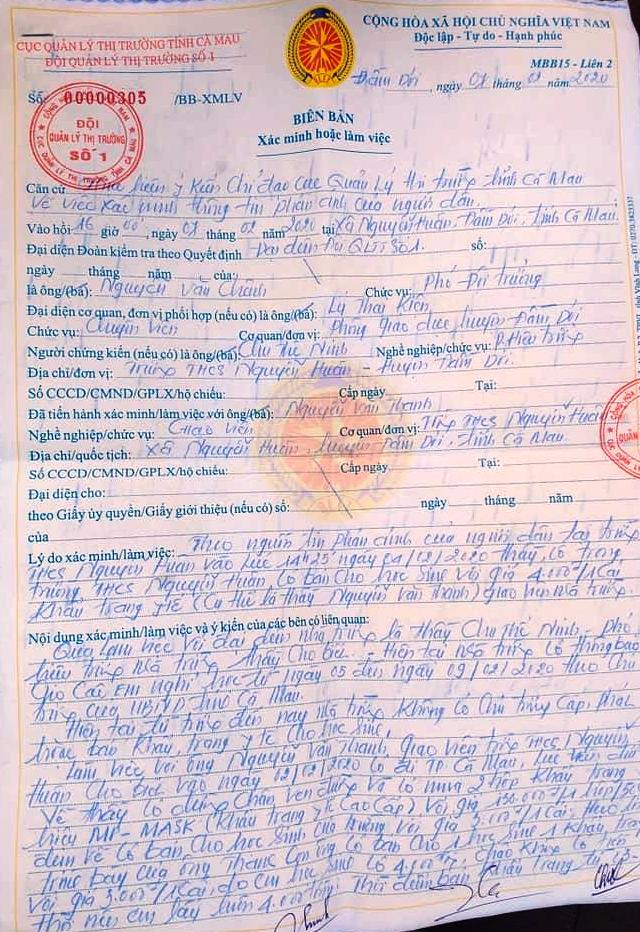 CỤC QUẢN LÝ THỊ TRƯỜNG TỈNH CÀ MAU
ĐỘI QUẢN LÝ THỊ TRƯỜNG SỐ 1
CỘNG HÒA XÃ HỘI CHỦ NGHĨA VIỆT NAM
Độc lập - Tự do - Hạnh phúc
MBB15 - Liên 2
Số: 00000305 /BB-XMLV
Đầm Dơi, ngày 01 tháng 02 năm 2020
ĐỘI
QUẢN LÝ THỊ TRƯỜNG
SỐ 1
BIÊN BẢN
Xác minh hoặc làm việc
Căn cứ Thực hiện ý kiến chỉ đạo cục Quản Lý thị trường tỉnh Cà Mau
Về việc xác minh thông tin phản ánh của người dân.
Vào hồi 16 giờ 00, ngày 01 tháng 02 năm 2020 tại Xã Nguyễn Huân, Đầm Dơi, Tỉnh Cà Mau.
Đại diện Đoàn kiểm tra theo Quyết định Đại diện Đội QLTT Số 1. số:
ngày tháng năm của:
là ông/(bà): Nguyễn Văn Chánh Chức vụ: Phó Đội trưởng
Đại diện cơ quan, đơn vị phối hợp (nếu có) là ông/(bà): Lý Thái Kiên
Chức vụ: Chuyên viên Cơ quan/đơn vị: Phòng giáo dục huyện Đầm Dơi
Người chứng kiến (nếu có) là ông/(bà): Chu Thế Ninh Nghề nghiệp/chức vụ: P. Hiệu trưởng
Địa chỉ/đơn vị: Trường THCS Nguyễn Huân - Huyện Đầm Dơi.
Số CCCD/CMND/GPLX/hộ chiếu: Cấp ngày Tại:
Đã tiến hành xác minh/làm việc với ông/(bà): Nguyễn Văn Thanh
Nghề nghiệp/chức vụ: Giáo viên Cơ quan/đơn vị: Trường THCS Nguyễn Huân
Địa chỉ/quốc tịch: Xã Nguyễn Huân, huyện Đầm Dơi, tỉnh Cà Mau.
Số CCCD/CMND/GPLX/hộ chiếu: Cấp ngày Tại:
Đại diện cho:
theo Giấy ủy quyền/Giấy giới thiệu (nếu có) số: ngày tháng năm
của
Lý do xác minh/làm việc: Theo nguồn tin phản ánh của người dân tại trường
THCS Nguyễn Huân vào lúc 14h25' ngày 01/02/2020 thấy có trong
trường THCS Nguyễn Huân có bán cho học sinh với giá 4.000đ/1 cái
khẩu trang y tế (cụ thể là thầy Nguyễn Văn Thanh) giáo viên nhà trường.
Nội dung xác minh/làm việc và ý kiến của các bên có liên quan:
Qua làm việc với đại diện nhà trường là thầy Chu Thế Ninh - Phó
hiệu trưởng nhà trường thầy cho biết: hiện tại nhà trường có thông báo
cho các em nghỉ học từ ngày 05 đến ngày 09/02/2020 theo chủ
trương của UBND tỉnh Cà Mau.
Hiện tại từ trước đến nay nhà trường không có chủ trương cấp, phát
hoặc bán khẩu trang y tế cho học sinh.
Làm việc với ông Nguyễn Văn Thanh, giáo viên trường THCS Nguyễn
Huân cho biết vào ngày 02/02/2020 có đi TP Cà Mau, lúc trên đường
về thầy có dừng chân ven đường và có mua 2 hộp khẩu trang
hiệu MP-MASK (Khẩu trang y tế cao cấp) với giá 150.000đ/1 hộp/50
đem về có bán cho học sinh của trường với giá 3.000đ/1 cái. Theo
trình bày của ông Thanh còn ông có bán cho 1 học sinh 1 khẩu trang
với giá 3.000đ/1 cái, do em học sinh có 4.000đ,
thối nên em lấy luôn 4.000đ